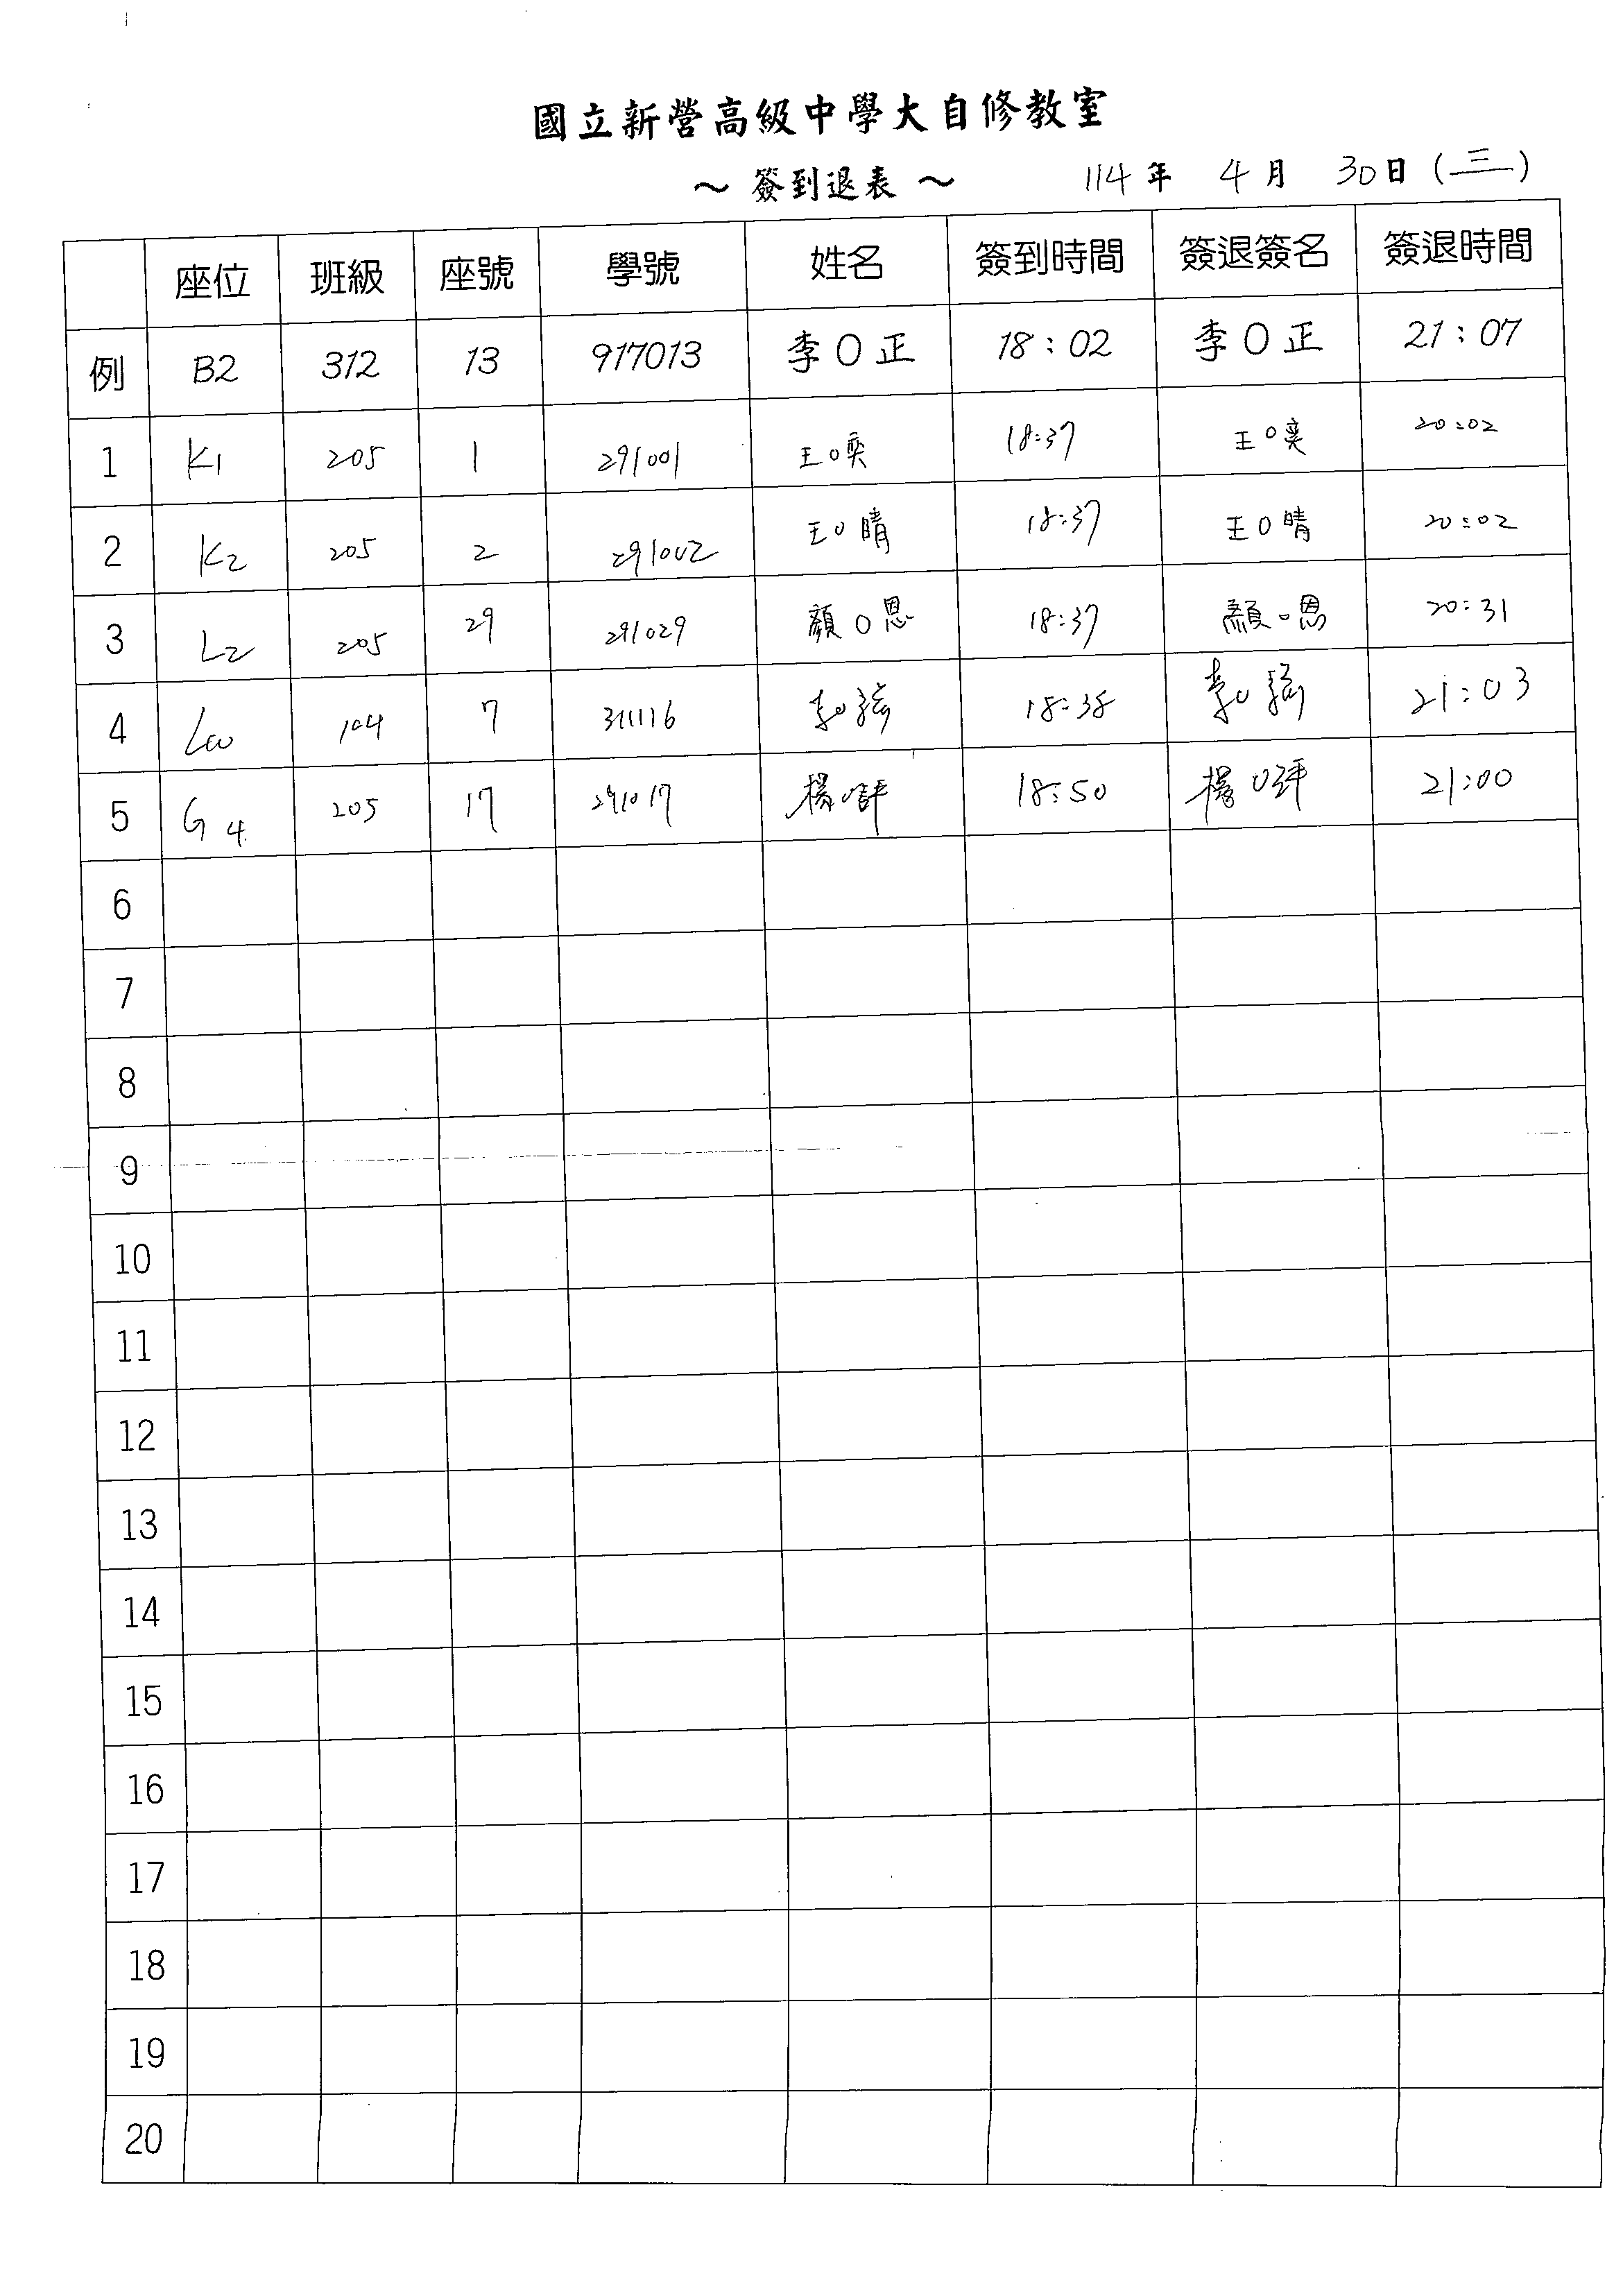 國立新營高級中學大自修教室
～ 簽到退表 ～ 114 年 4 月 30 日 (三)
座位 班級 座號 學號 姓名 簽到時間 簽退簽名 簽退時間
例 B2 312 13 917013 李O正 18：02 李O正 21：07
1 K1 205 1 291001 王O奕 18:37 王O奕 20:02
2 K2 205 2 291002 王O晴 18:37 王O晴 20:02
3 L2 205 29 291029 顏O恩 18:37 顏O恩 20:31
4 104 7 311116 李O 18:38 李O 21:03
5 G4 205 17 291017 楊O 18:50 楊O 21:00
6
7
8
9
10
11
12
13
14
15
16
17
18
19
20